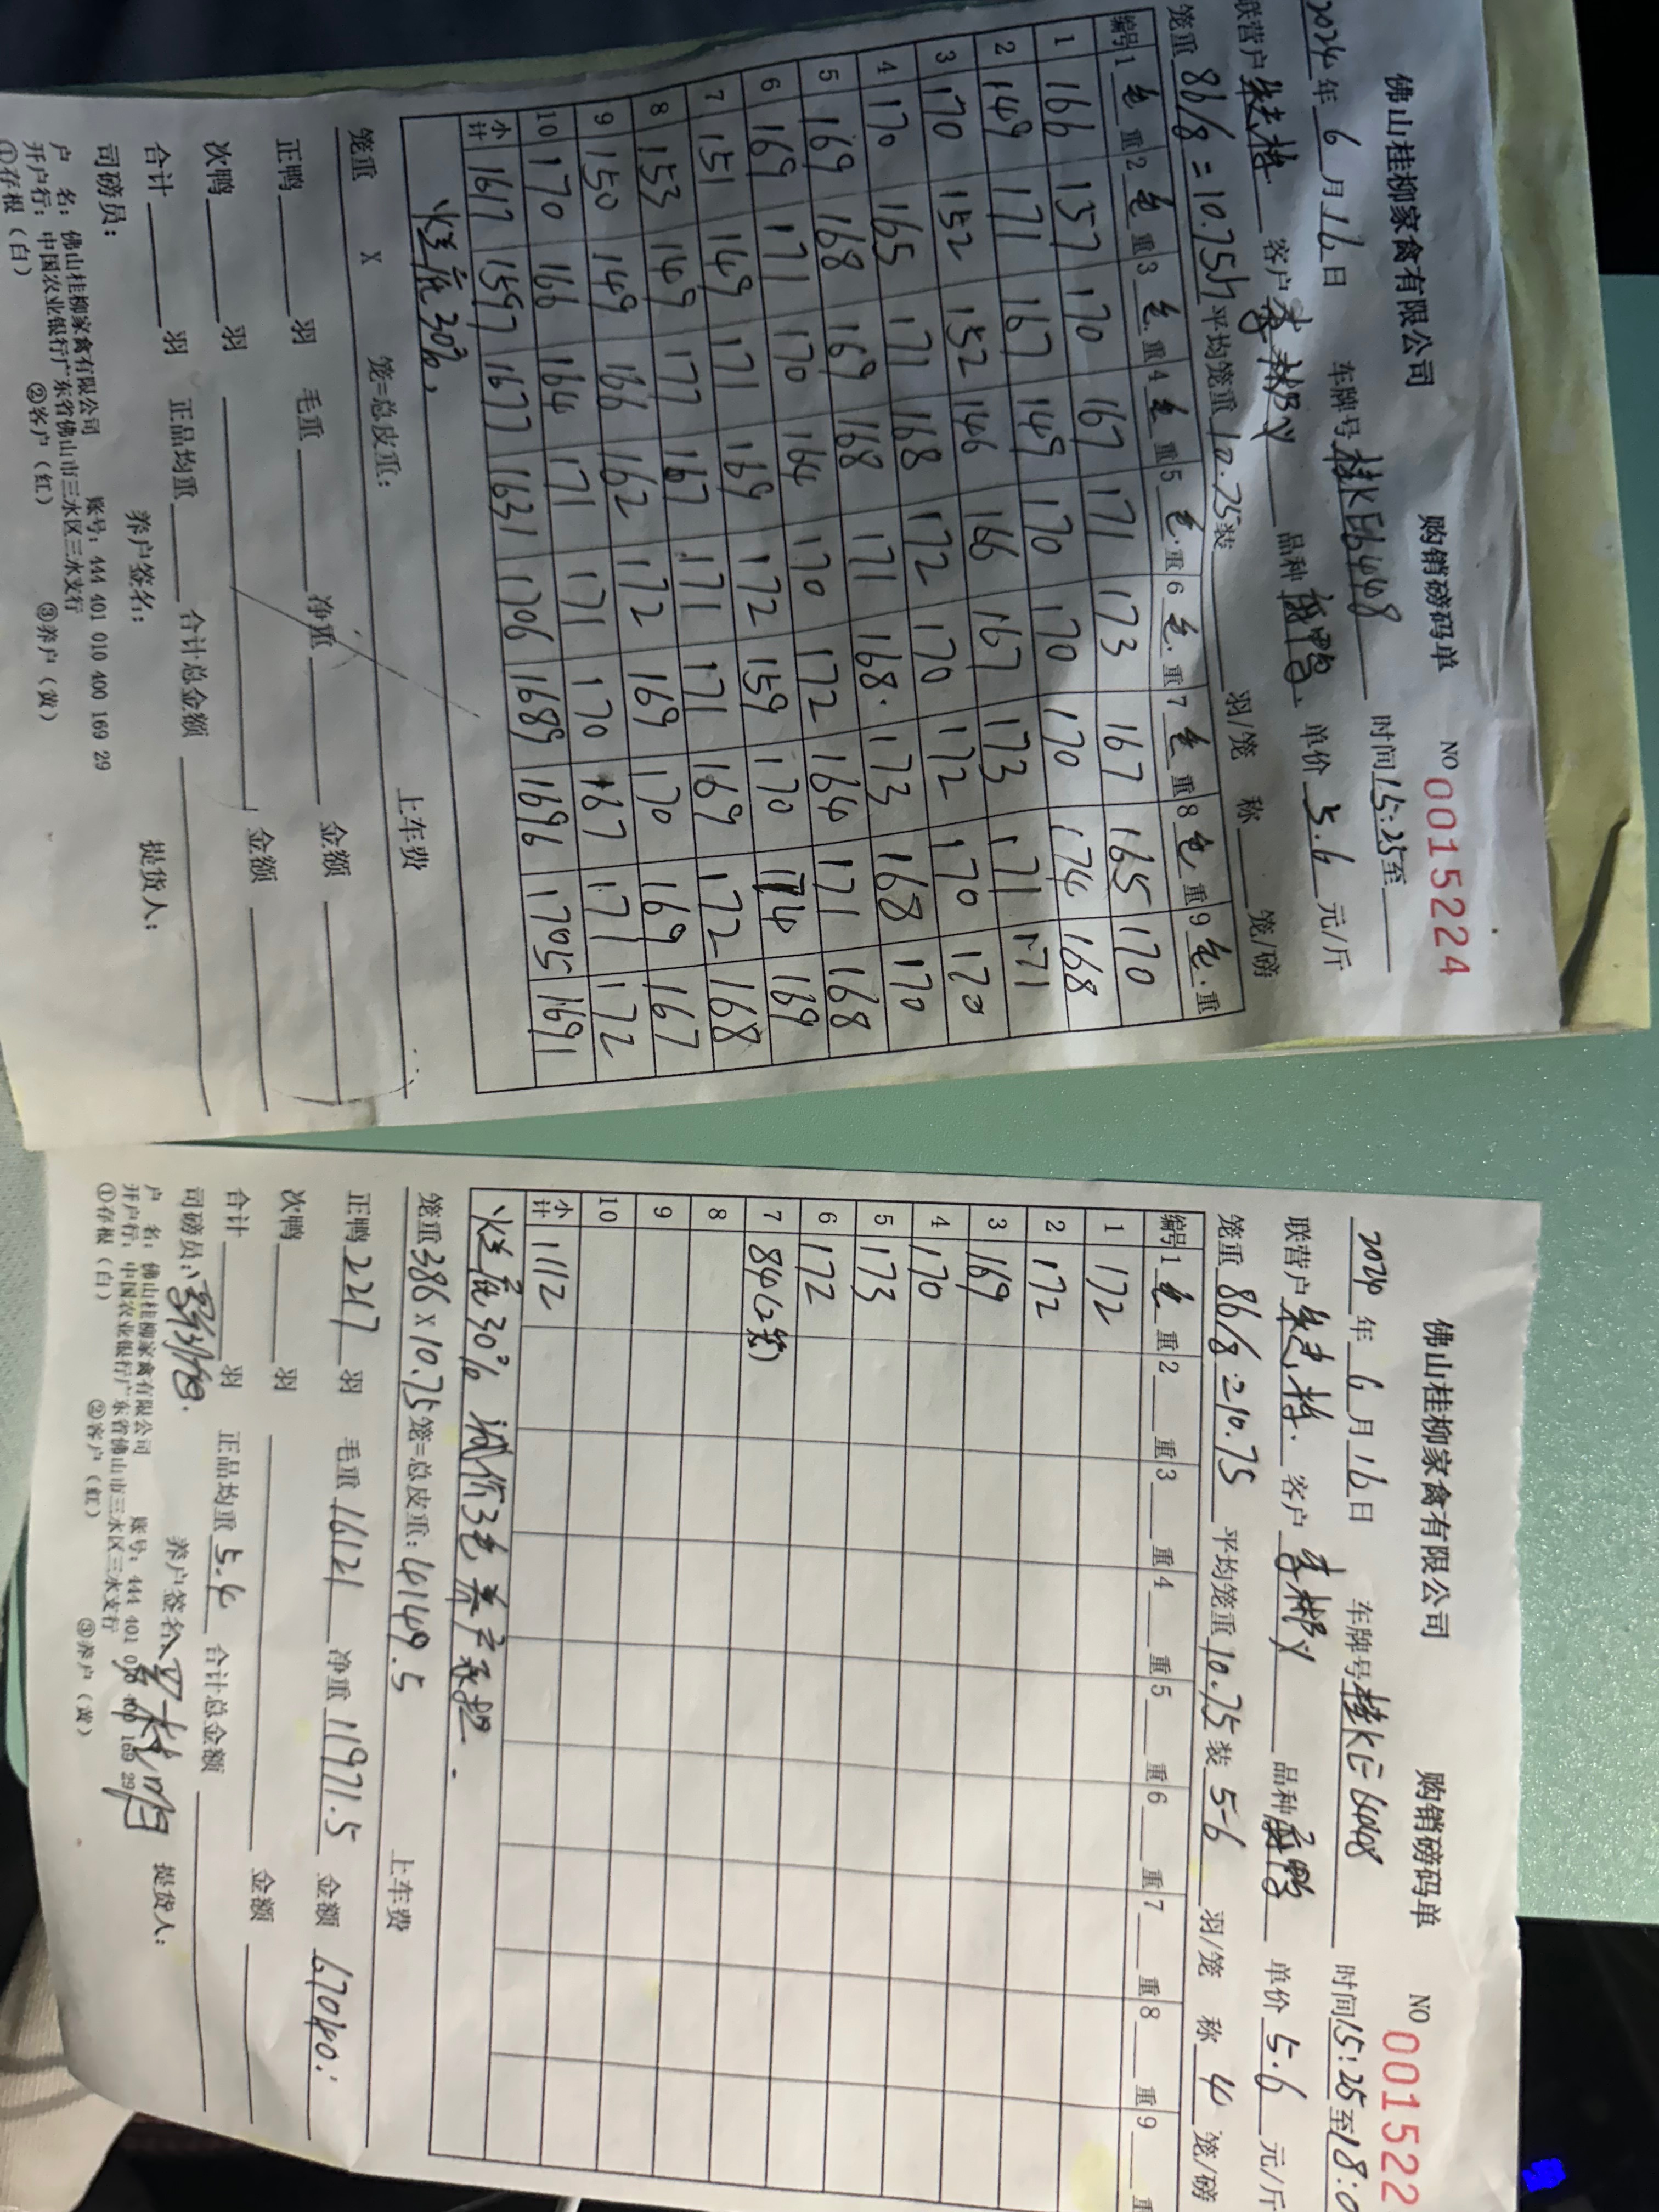 佛山桂柳家禽有限公司 购销磅码单 NO 0015224
2024年6月16日 车牌号桂KE6448 时间15:25至
联营户 客户李彬义 品种 单价5.6元/斤
笼重86/8=10.75斤 平均笼重10.75装 羽/笼 称 笼/磅
编号 1毛重 2毛重 3毛重 4毛重 5毛重 6毛重 7毛重 8毛重 9毛重
1 166 157 170 167 171 173 167 165 170
2 149 171 167 149 170 170 170 174 168
3 170 152 152 146 166 167 173 171 171
4 170 165 171 168 172 170 172 170 170
5 169 168 169 168 171 168 173 168 170
6 169 171 170 164 170 172 164 171 168
7 151 149 171 169 172 159 170 174 169
8 153 149 177 167 171 171 169 172 168
9 150 149 166 162 172 169 170 169 167
10 170 166 164 171 171 170 167 171 172
小计 1617 1597 1677 1631 1706 1689 1696 1705 1691
烂底30%.
笼重 X 笼=总皮重: 上车费
正鸭 羽 毛重 净重 金额
次鸭 羽 金额
合计 羽 正品均重 合计总金额
司磅员: 养户签名: 提货人:
户 名: 佛山桂柳家禽有限公司 账号: 444 401 010 400 169 29
开户行: 中国农业银行广东省佛山市三水区三水支行
①存根(白) ②客户(红) ③养户(黄)
佛山桂柳家禽有限公司 购销磅码单 NO 001522
2024年6月16日 车牌号桂KE6448 时间15:25至18:0
联营户 客户李彬义 品种 单价5.6元/斤
笼重86/8=10.75 平均笼重10.75装5-6羽/笼 称4笼/磅
编号 1毛重 2 重 3 重 4 重 5 重 6 重 7 重 8 重 9 重
1 172
2 172
3 169
4 170
5 173
6 172
7 84(2笼)
8
9
10
小计 1112
烂底30% 减价3毛 养户承担.
笼重386X10.75笼=总皮重:4149.5 上车费
正鸭2217羽 毛重16121 净重11971.5 金额67040.
次鸭 羽 金额
合计 羽 正品均重5.4 合计总金额
司磅员: 养户签名: 提货人:
户 名: 佛山桂柳家禽有限公司 账号: 444 401 010 400 169 29
开户行: 中国农业银行广东省佛山市三水区三水支行
①存根(白) ②客户(红) ③养户(黄)